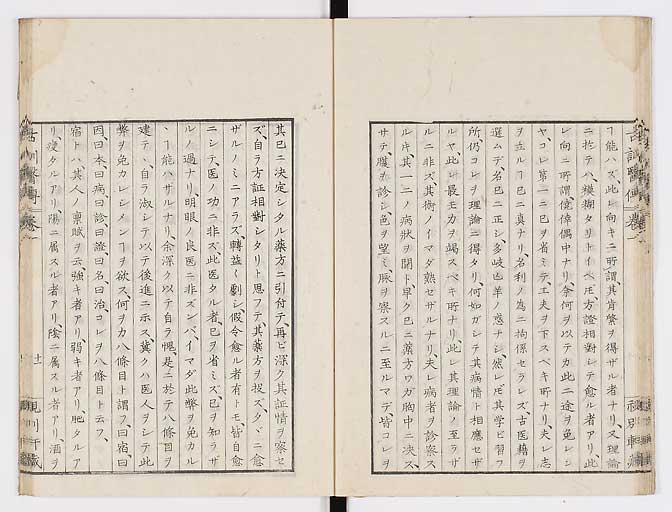 ヿ能ハズ此レ向キニ所謂、其肯綮ヲ得ザル者ナリ、又理論
ニ於テハ、糢糊タリトイヘ𪜈、方證相對シテ愈ル者アリ、此
レ向ニ所謂僥倖偶中ナリ、余何ヲ以テカ此二途ヲ免レン
ヤ、コレ第一ニ已ヲ省ミテ、工夫ヲ下スベキ所ナリ、夫レ志
ヲ立ルヿ已ニ真ナリ、名利ノ為ニ拘係セラレズ、古医藉ヲ
選ムデ名已ニ正シ、多岐亡羊ノ惑ナシ、然レ𪜈其学ビ習フ
所仍コレヲ理論ニ得タリ、何如ガシテ其病情ト相應セザ
ルヤ、此レ最モ力ヲ竭スベキ所ナリ、此レ其理論ノ至ラザ
ルニ非ズ、其術ノイマダ熟セザルナリ、夫レ病者ヲ診察ス
ルキ、其一二ノ病狀ヲ聞ト早ク已ニ薬方ワガ胸中ニ决ス、
サテ、腹ヲ診シ色ヲ望ミ、脈ヲ察スルニ至ルマデ、皆コレヲ
其已ニ决定シタル薬方ニ引付テ、再ビ深ク其証情ヲ察セ
ズ、自ラ方証相對シタリト思フテ、其薬方ヲ投ズ、タヾニ愈
ザルノミニアラズ、轉益〱劇シ、假令愈ル者有トモ、皆自愈
ニシテ、医ノ功ニ非ズ、此医タル者、已ヲ省ミズ、已ヲ知ラザ
ルノ過ナリ、明眼ノ良医ニ非ズンバ、イマダ此弊ヲ免カル
ヽヿ能ハザルナリ、余深ク以テ自ラ愧、是ニ於テ八條目ヲ
建テヽ、自ラ淑シテ以テ後進ニ示ス、冀クハ医人ヲシテ此
弊ヲ免カレシメンヿヲ欲ス、何ヲカ八條目ト謂フ、曰宿、曰
因、曰本、曰病、曰診、曰證、曰名、曰治、コレヲ八條目ト云フ、
宿トハ其人ノ稟賦ヲ云、強キ者アリ、弱キ者アリ、肥タルア
リ、瘦タルアリ、陽ニ屬スル者アリ、陰ニ屬スル者アリ、酒ヲ
十一